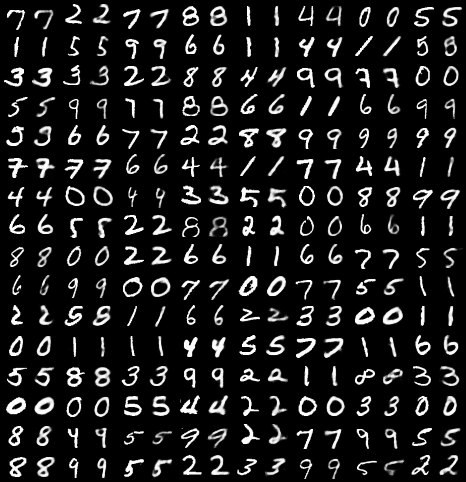 7 7 2 2 7 7 8 8 1 1 4 4 0 0 5 5
1 1 5 5 9 9 6 6 1 1 4 4 / / 5 8
3 3 3 3 2 2 8 8 4 4 9 9 7 7 0 0
5 5 9 9 7 7 8 8 6 6 1 1 6 6 9 9
5 3 6 6 7 7 2 2 8 8 9 9 9 9 9 9
7 7 7 7 6 6 4 4 / / 7 7 4 4 1 1
4 4 0 0 4 4 3 3 5 5 0 0 8 8 9 9
6 6 5 5 2 2 8 8 2 2 0 0 6 6 1 1
8 8 0 0 2 2 6 6 1 1 6 6 7 7 5 5
6 6 9 9 0 0 7 7 0 0 7 7 5 5 1 1
2 2 5 8 1 1 6 6 2 2 3 3 0 0 1 1
0 0 1 1 1 1 4 4 5 5 7 7 1 1 6 6
5 5 8 8 3 3 9 9 2 2 1 1 8 8 3 3
0 0 0 0 5 5 4 4 2 2 0 0 3 3 0 0
8 8 4 9 5 5 9 9 2 2 7 7 9 9 5 5
8 8 9 9 5 5 2 2 3 3 9 9 5 5 2 2